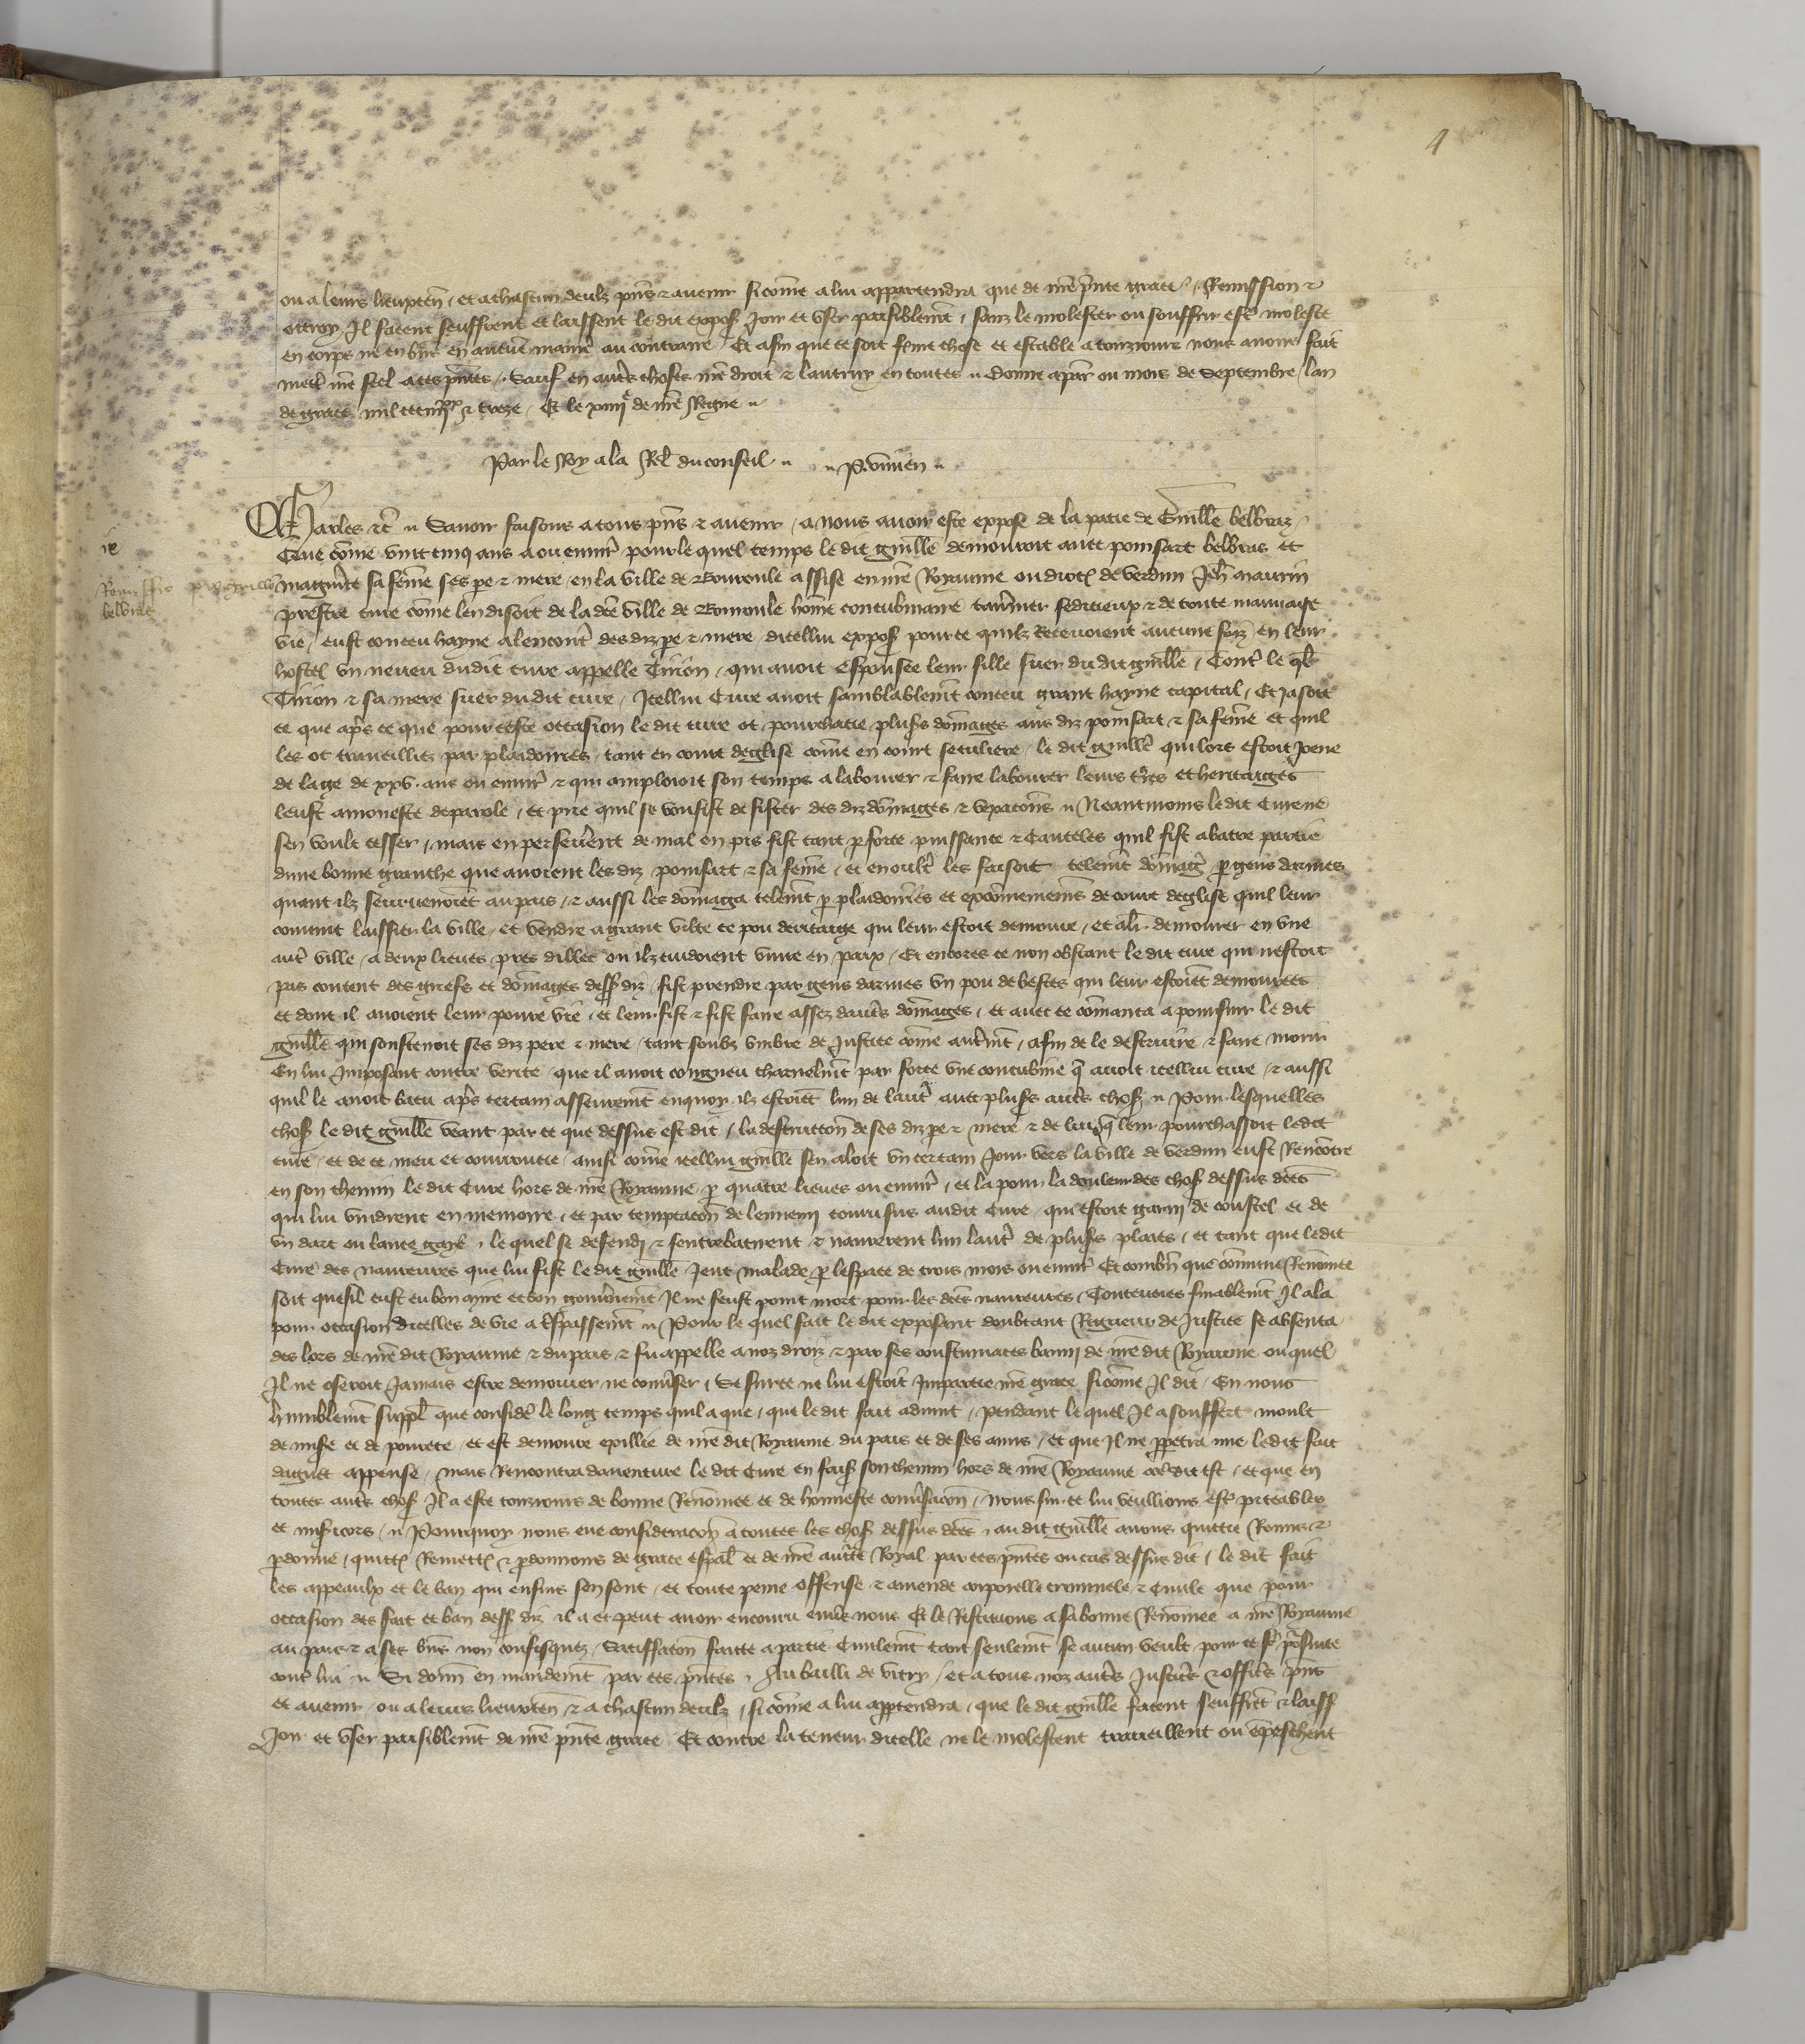 4
ou a leurs lieuxten̄ et a chascun deulx p̄ns et avenir si cōme a lui appartendra que de n̄re p̄nte grace Remission et
ottroy Il facent seuffrent et laissent le dit expos̄ Joir et user paisiblem̄t sanz le molester ou souffrir est̄ moleste
en corps ne en biēs en aucūe manie᷒ au contraire Et afin que ce soit ferme chose et estable a touzjours nous avons fait
mett̄ n̄re seel a ces p̄ntes Sauf en aut̄s choses n̄re droit et lautruy en toutes Donne a par̄ ou mois de Septembre lan
de grace mil ccc iiijxx et treze Et le xiiije de n̄re Regne
Par le Roy a la Rel̄ du conseil P. Vivien
Charles etc̄ Savoir faisons a tous p̄ns et avenir a nous avoir este expose de la partie de Guill̄e belbraz
ix
Que cōme vint cinq ans a ou envir̄ pour le quel temps le dit guill̄e demouroit avec ponsart belbras et
Remissio p̄ Guill̄m
belbrat
margūite sa fēme ses pe᷒ et mere en la ville de assise en n̄re Royaume ou dioc̄ de verdun Jeh̄ maurin
prestre cure cōme len disoit de la dc̄e ville de hōme concubinaire tav̄nier sedicieux et de toute mauvaise
vie eust conceu hayne alencont̄ des diz pe᷒ et mere dicellui expos̄ pour ce quilz recevoient aucune foiz en leur
hostel un neveu du dit cure appelle Tirion qui avoit espousee leur fille suer du dit guill̄e Cont̄ le ql̄
Tirion et sa mere suer du dit cure Icellui Cure avoit samblablem̄t conceu grant hayne capital Et ja soit
ce que ap̄s ce que pour ceste occasion le dit cure ot pourchacie plus̄s dōmages aus diz ponsart et sa fēme et quil
les ot travaillies par plaidoiries tant en court deglise cōme en court seculiere le dit guill̄e qui lors estoit Jeune
de lage de xxv ans ou envir̄ et qui emploioit son temps a labourer et faire labourer leurs t̄res et heritaiges
leust amoneste de parole et prie quil se voulsist desister des diz dōmages et vexacōns Neantmoins le dit Cure ne
sen voult cesser mais en persev̄ent de mal en pis fist tant p̄ force puissance et Cauteles quil fist abatre partie
dune bonne granche que avoient les diz ponsart et sa fēme et en oult̄ les faisoit telem̄t dōmaḡ p̄ gens darmes
quant ilz seurvenoiēt au pais et aussi les dōmaga telem̄t p̄ plaidoiries et excōmeniem̄s de court deglise quil leur
convint laissier la ville et vendre a grant vilte ce pou deritaige qui leur estoit demoure et aler demourer en une
aut̄ ville a deux lieues pres dillec ou ilz cuidoient vivre en paix Et encores ce non obstant le dit cure qui nestoit
pas content des griefs et dōmages dess̄ diz fist prendre par gens darmes un pou de bestes qui leur estoiēt demourees
et dont il avoient leur povre vie et leur fist et fist faire assez daut̄s dōmages et avec ce cōmanca a poursuir le dit
guill̄e qui soustenoit ses diz pere et mere tant soubz umbre de Justice cōme autrem̄t afin de le destruire et faire morir
En lui Imposant contre verite que il avoit congneu charnelm̄t par force une concubine q̄ avoit icellui cure et aussi
quil le avoit batu ap̄s certain asseurem̄t en quoy ilz estoiēt lun de laut̄ avec plus̄s aut̄s chos̄ Pour lesquelles
chos̄ le dit guill̄e veant par ce que dessus est dit la destruccōn de ses diz pe᷒ et mere et de lui q̄ leur pourchassoit le dit
cure et de ce meu et courroucie ainsi cōme icellui guill̄e sen aloit un certain Jour vers la ville de verdun eust Rencōtre
en son chemin le dit Cure hors de n̄re Royaume p̄ quatre lieues ou envir̄ et la pour la douleur des chos̄ dessus dc̄es
qui lui vindrent en memoire et par temptacōn de lennemi couru sus au dit Cure qui estoit garni de coustel et de
un dart ou lance le quel se defendi et sentrebatirent et navrerent lun laut̄ de plus̄s plaies et tant que le dit
Cure des navreures que lui fist le dit guill̄e Jeut malade p̄ lespace de trois mois ou envir̄ Et combn̄ que cōmune Renōmee
soit que sil eust eu bon mire et bon gouv̄nem̄t Il ne feust point mort pour les dc̄es navreures Toutevoies finablem̄t Il ala
pour occasion dicelles de vie a t̄spassem̄t Pour le quel fait le dit exposant doubtant Rigueur de Justice se absenta
des lors de n̄re dit Royaume et du pais et fu appelle a noz droiz et par ses coustumaces banni de n̄re dit Royaume ou quel
Il ne oseroit Jamais estre demourer ne convs̄er Se sur ce ne lui estoit Impartie n̄re grace si cōme Il dit En nous
humblem̄t suppl̄ que consider̄ le long temps quil a que que le dit fait advint pendant le quel Il a souffert moult
de mis̄e et de povrete et est demoure exillie de n̄re dit Royaume du pais et de ses amis et que Il ne p̄petra mie le dit fait
daguet appense mais Rencontra daventure le dit Cure en fais̄ son chemin hors de n̄re Royaume cōe dit est et que en
toutes aut̄s chos̄ Il a este touzjours de bonne Renōmee et de honneste convs̄acōn nous sur ce lui veullions est̄ piteables
et mis̄icors Pourquoy nous eue consideracōn a toutes les chos̄ dessus dc̄es au dit guill̄e avons quittie Remis et
p̄donne quitt̄ Remett̄ et p̄donnons de grace esp̄al̄ et de n̄re auct̄e Royal par ces p̄ntes ou cas dessus dit le dit fait
les appeaulx et le ban qui ensuis sen sont et toute peine offense et amende corporelle criminele et Civile que pour
occasion des fait et ban dess̄ diz il a et peut avoir encouru env̄s nous Et le Restituons a sa bonne Renōmee a n̄re Royaume
au pais et a ses biēs non confisquez Satisfacōn faicte a partie Civilem̄t tant seulem̄t se aucun veult pour ce f̄e p̄suite
cont̄ lui Si donn̄ en mandem̄t par ces p̄ntes Au bailli de vitry et a tous noz aut̄s Justic̄s et offic̄s p̄ns
et avenir ou a leurs lieuxten̄ et a chascun deulx si cōme a lui app̄tendra que le dit guill̄e facent seuffrēt et laiss̄
Joir et user paisiblem̄t de n̄re p̄nte grace Et contre la teneur dicelle ne le molestent travaillent ou ēpeschent